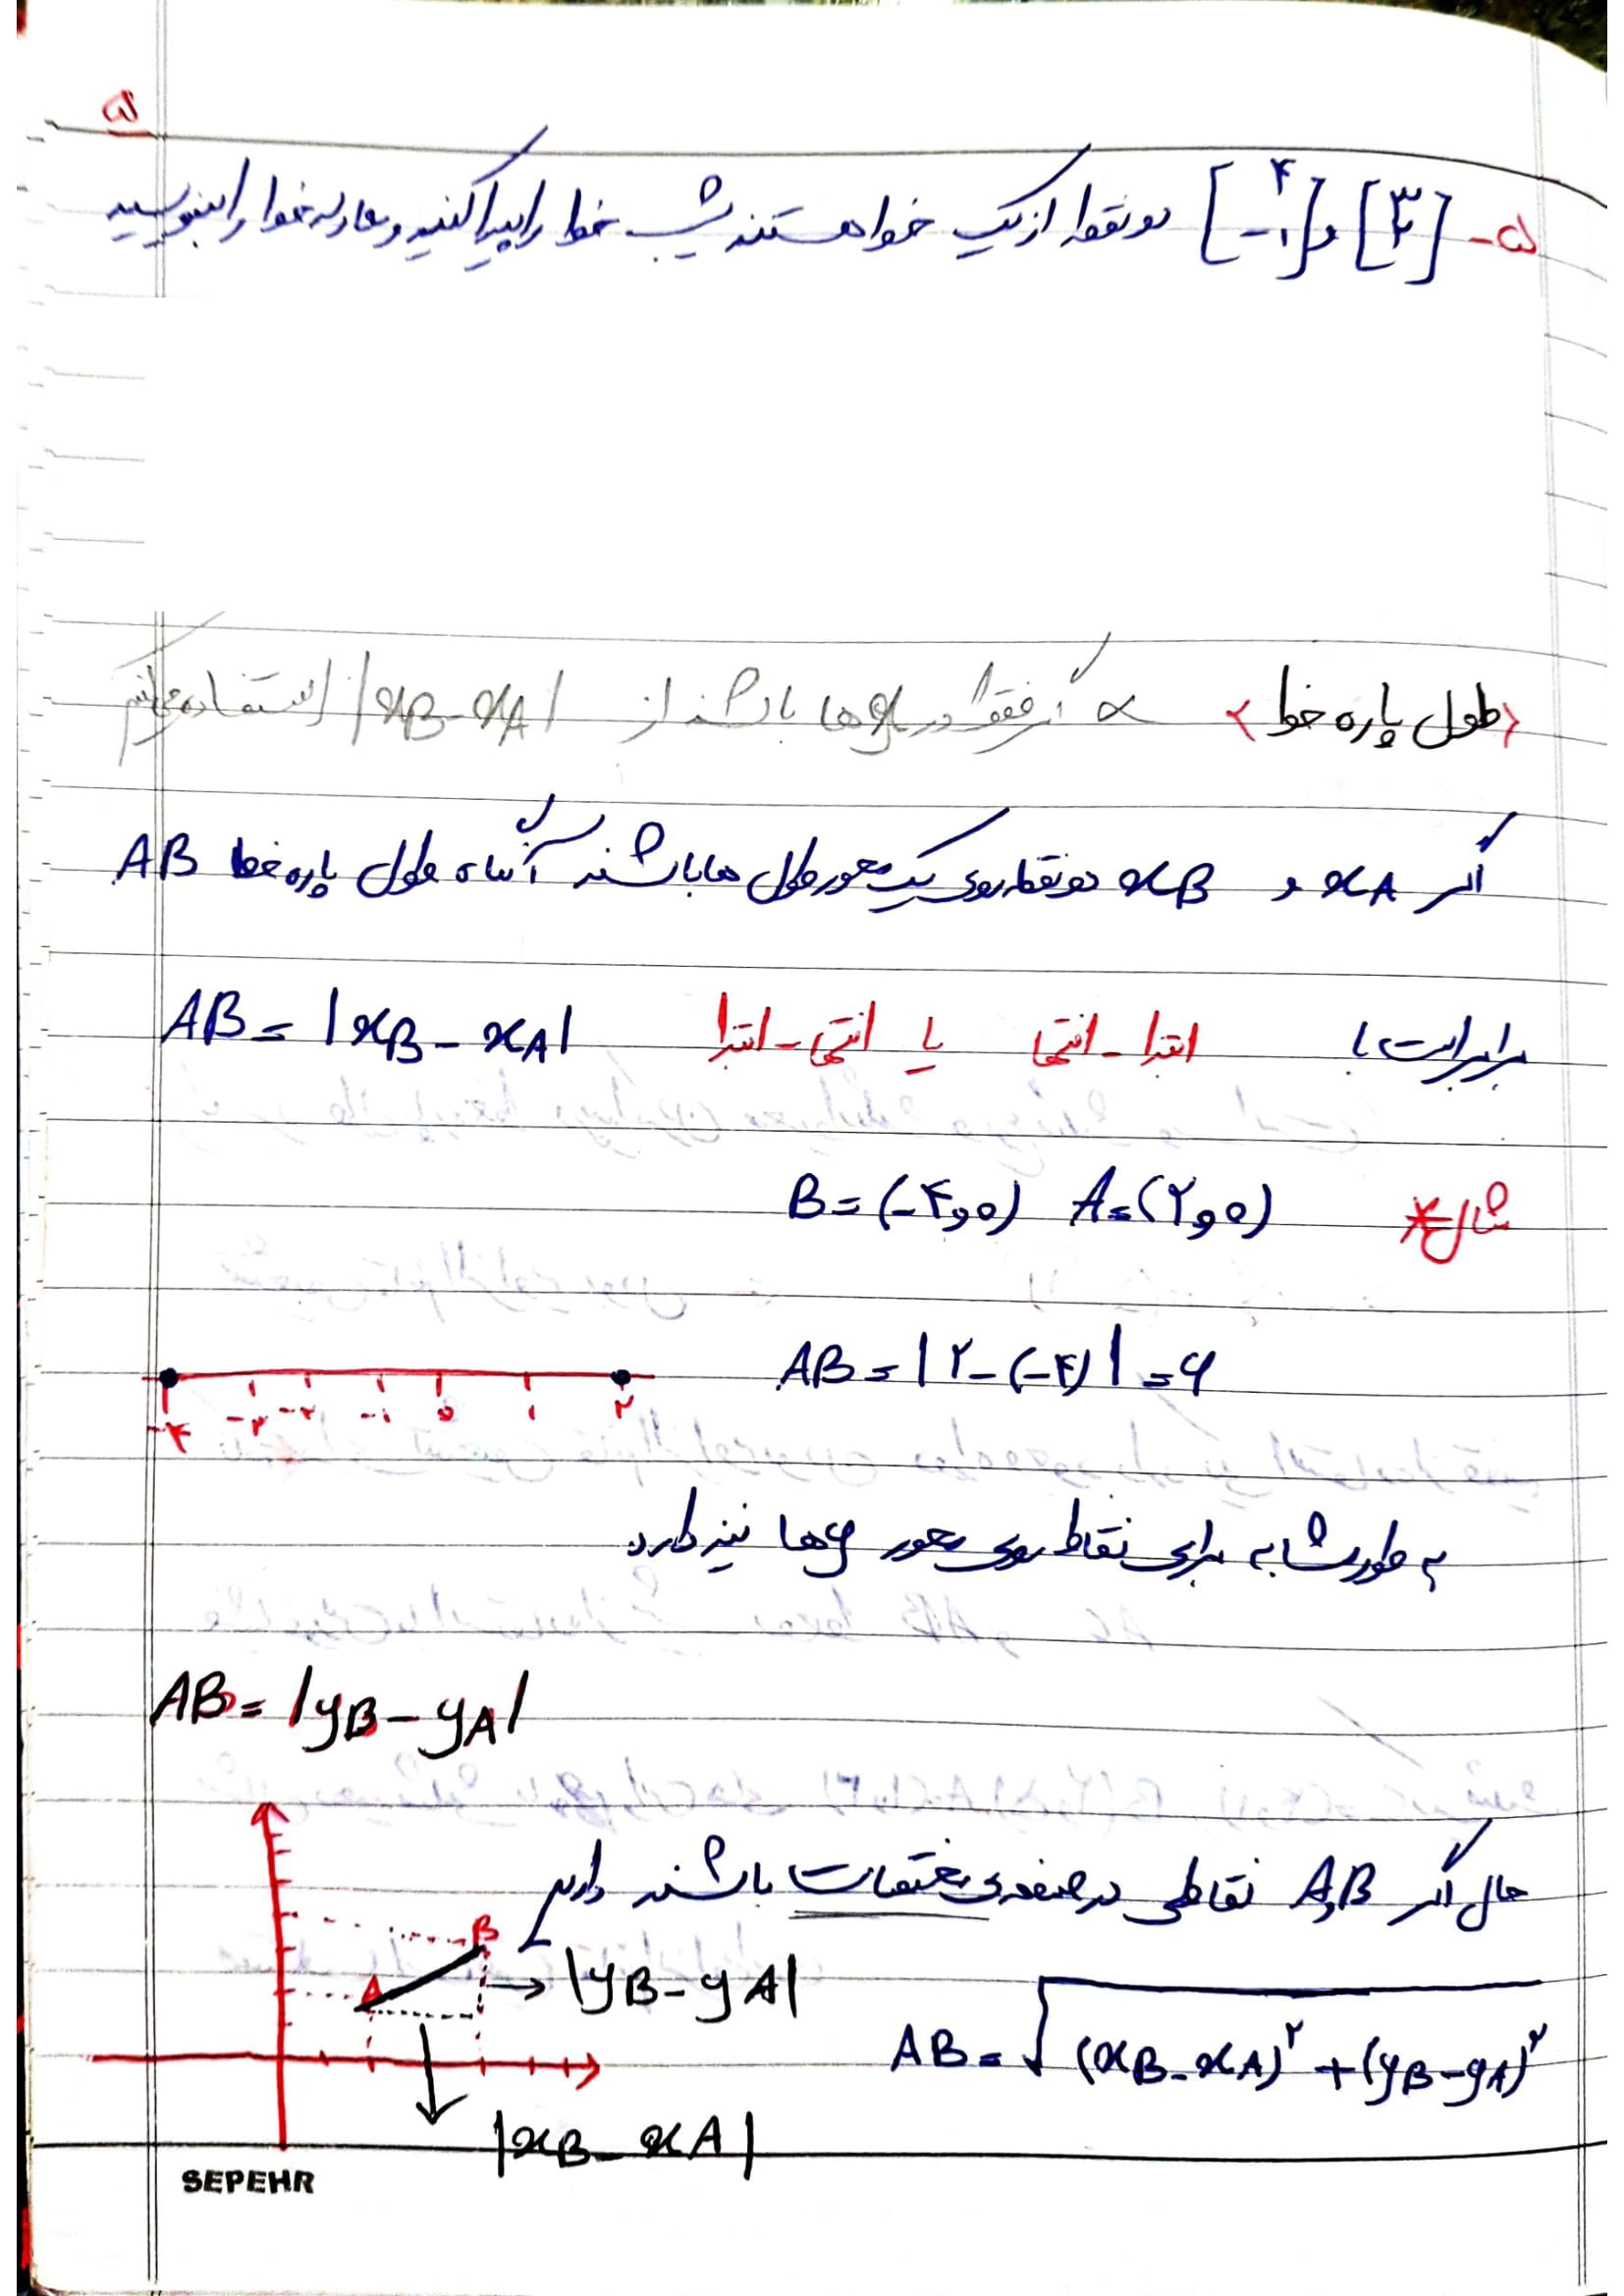 ۵
۵- [۳ ۲] و [۴ -۱] دو نقطه از یک خط هستند شیب خط را پیدا کنید و معادله خط را بنویسید
<طول پاره خط> اگر فقط در xها باشند از |xB - xA| استفاده می‌کنیم
اگر xA و xB دو نقطه روی یک محور طول ها باشند آنگاه طول پاره خط AB
برابر است با ابتدا - انتها یا انتها - ابتدا AB = |xB - xA|
مثال* A = (۲ و ۰) B = (-۴ و ۰)
AB = |۲ - (-۴)| = ۶
-۴ -۳ -۲ -۱ ۰ ۱ ۲
به طور مشابه برای نقاط روی محور yها نیز دارد
AB = |yB - yA|
حال اگر A,B نقاطی در صفحه‌ی مختصات باشند داریم
A B
|yB - yA|
AB = √(xB - xA)² + (yB - yA)²
|xB - xA|
SEPEHR